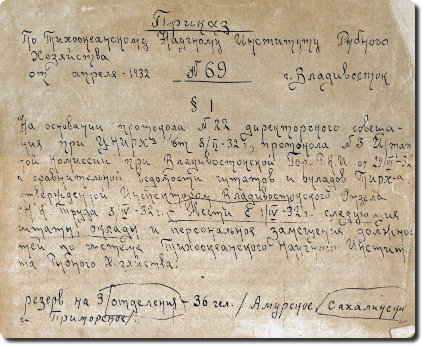 Приказ
По Тихоокеанскому Научному Институту Рыбного
Хозяйства
от апреля - 1932 № 69 г. Владивосток
§ 1
На основании протокола № 22 директорского совеща-
ния при ЦНИРХ от 8/II - 32 г., протокола № 3 Штат
ной комиссии при Владивостокской Гор. Р.К.И от 29/III - 32
и сравнительной ведомости штатов и окладов Тирх-а
утвержденной Инспектором Владивостокского Отдела
труда 5/IV - 32 г. Ввести с 1/IV - 32 г. следующия
штаты, оклады и персональное замещения должнос
тей по системе Тихоокеанского Научного Инстит
та Рыбного Хозяйства:
резерв на 3 отделения - 36 чел. / Амурское, Сахалинск
и Приморское /